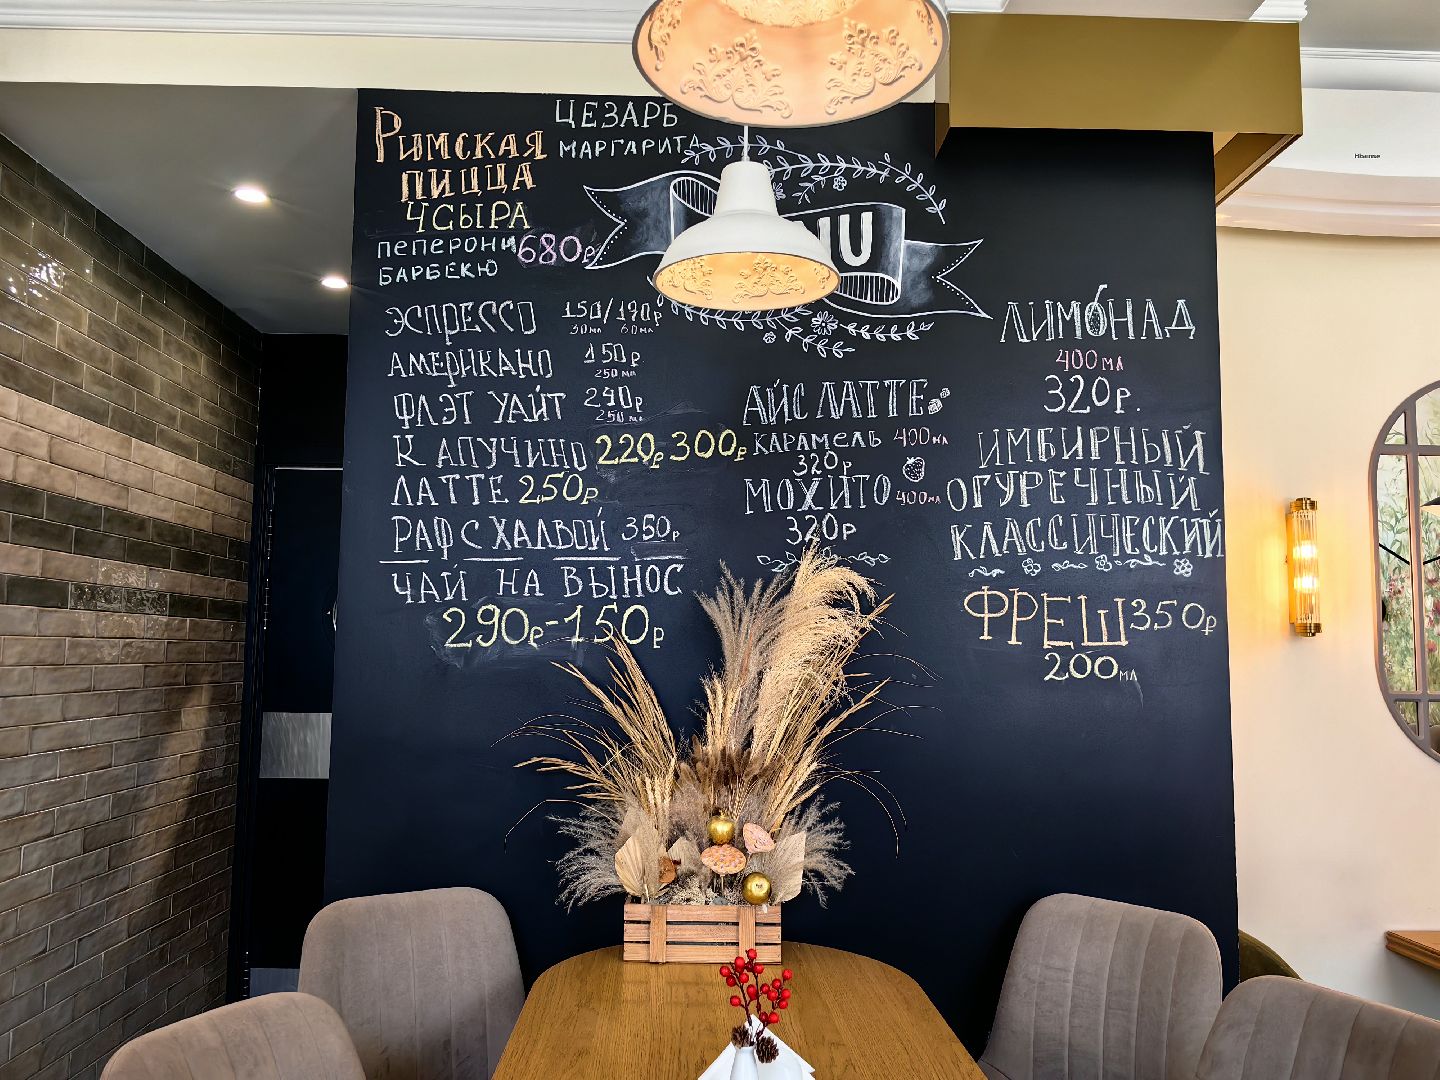 ЦЕЗАРЬ
МАРГАРИТА
РИМСКАЯ
ПИЦЦА
4 СЫРА
ПЕПЕРОНИ 680₽
БАРБЕКЮ
ЭСПРЕССО 150/170₽
30 мл 60 мл
АМЕРИКАНО 150₽
250 мл
ФЛЭТ УАЙТ 240₽
250 мл
КАПУЧИНО 220₽-300₽
ЛАТТЕ 250₽
РАФ С ХАЛВОЙ 350₽
ЧАЙ НА ВЫНОС
290₽-150₽
АЙС ЛАТТЕ
КАРАМЕЛЬ 400 мл
320₽
МОХИТО 400 мл
320₽
ЛИМОНАД
400 мл
320Р.
ИМБИРНЫЙ
ОГУРЕЧНЫЙ
КЛАССИЧЕСКИЙ
ФРЕШ 350₽
200 мл
Hisense